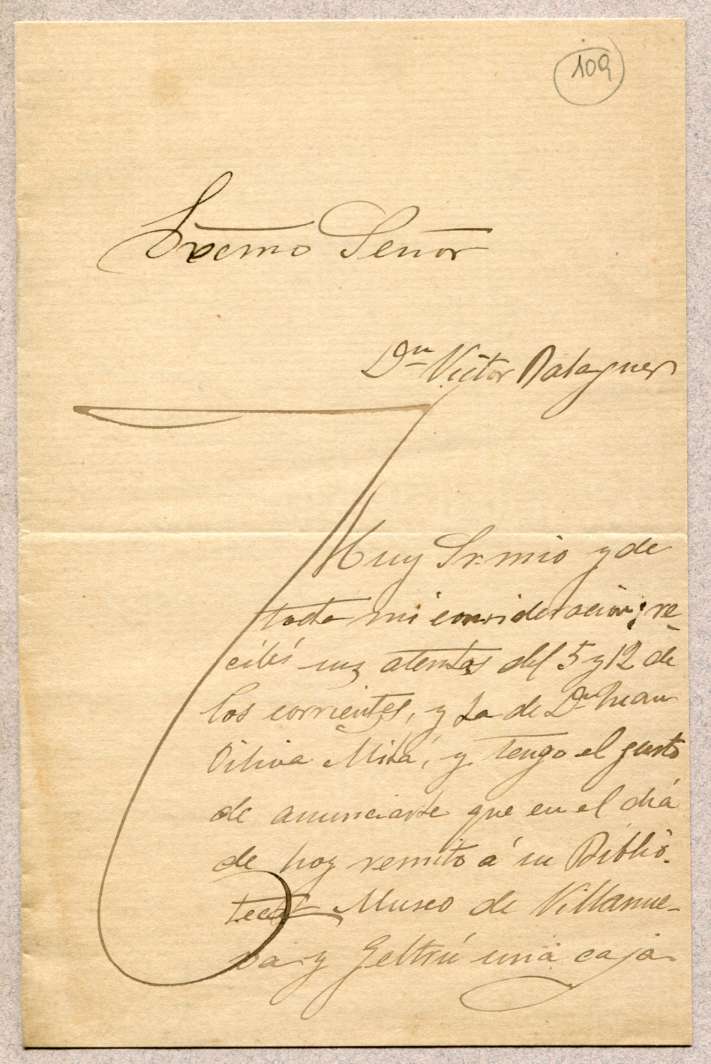 109
Excmo Señor
Dn Victor Balaguer
Muy Sr. mio y de
toda mi consideración; re-
cibí sus atentas del 5 y 12 de
los corrientes, y la de Dn Juan
Oiliva Milá, y tengo el gusto
de anunciarle que en el día
de hoy remito á su Biblio-
teca Museo de Villanue-
va y Geltrú una caja